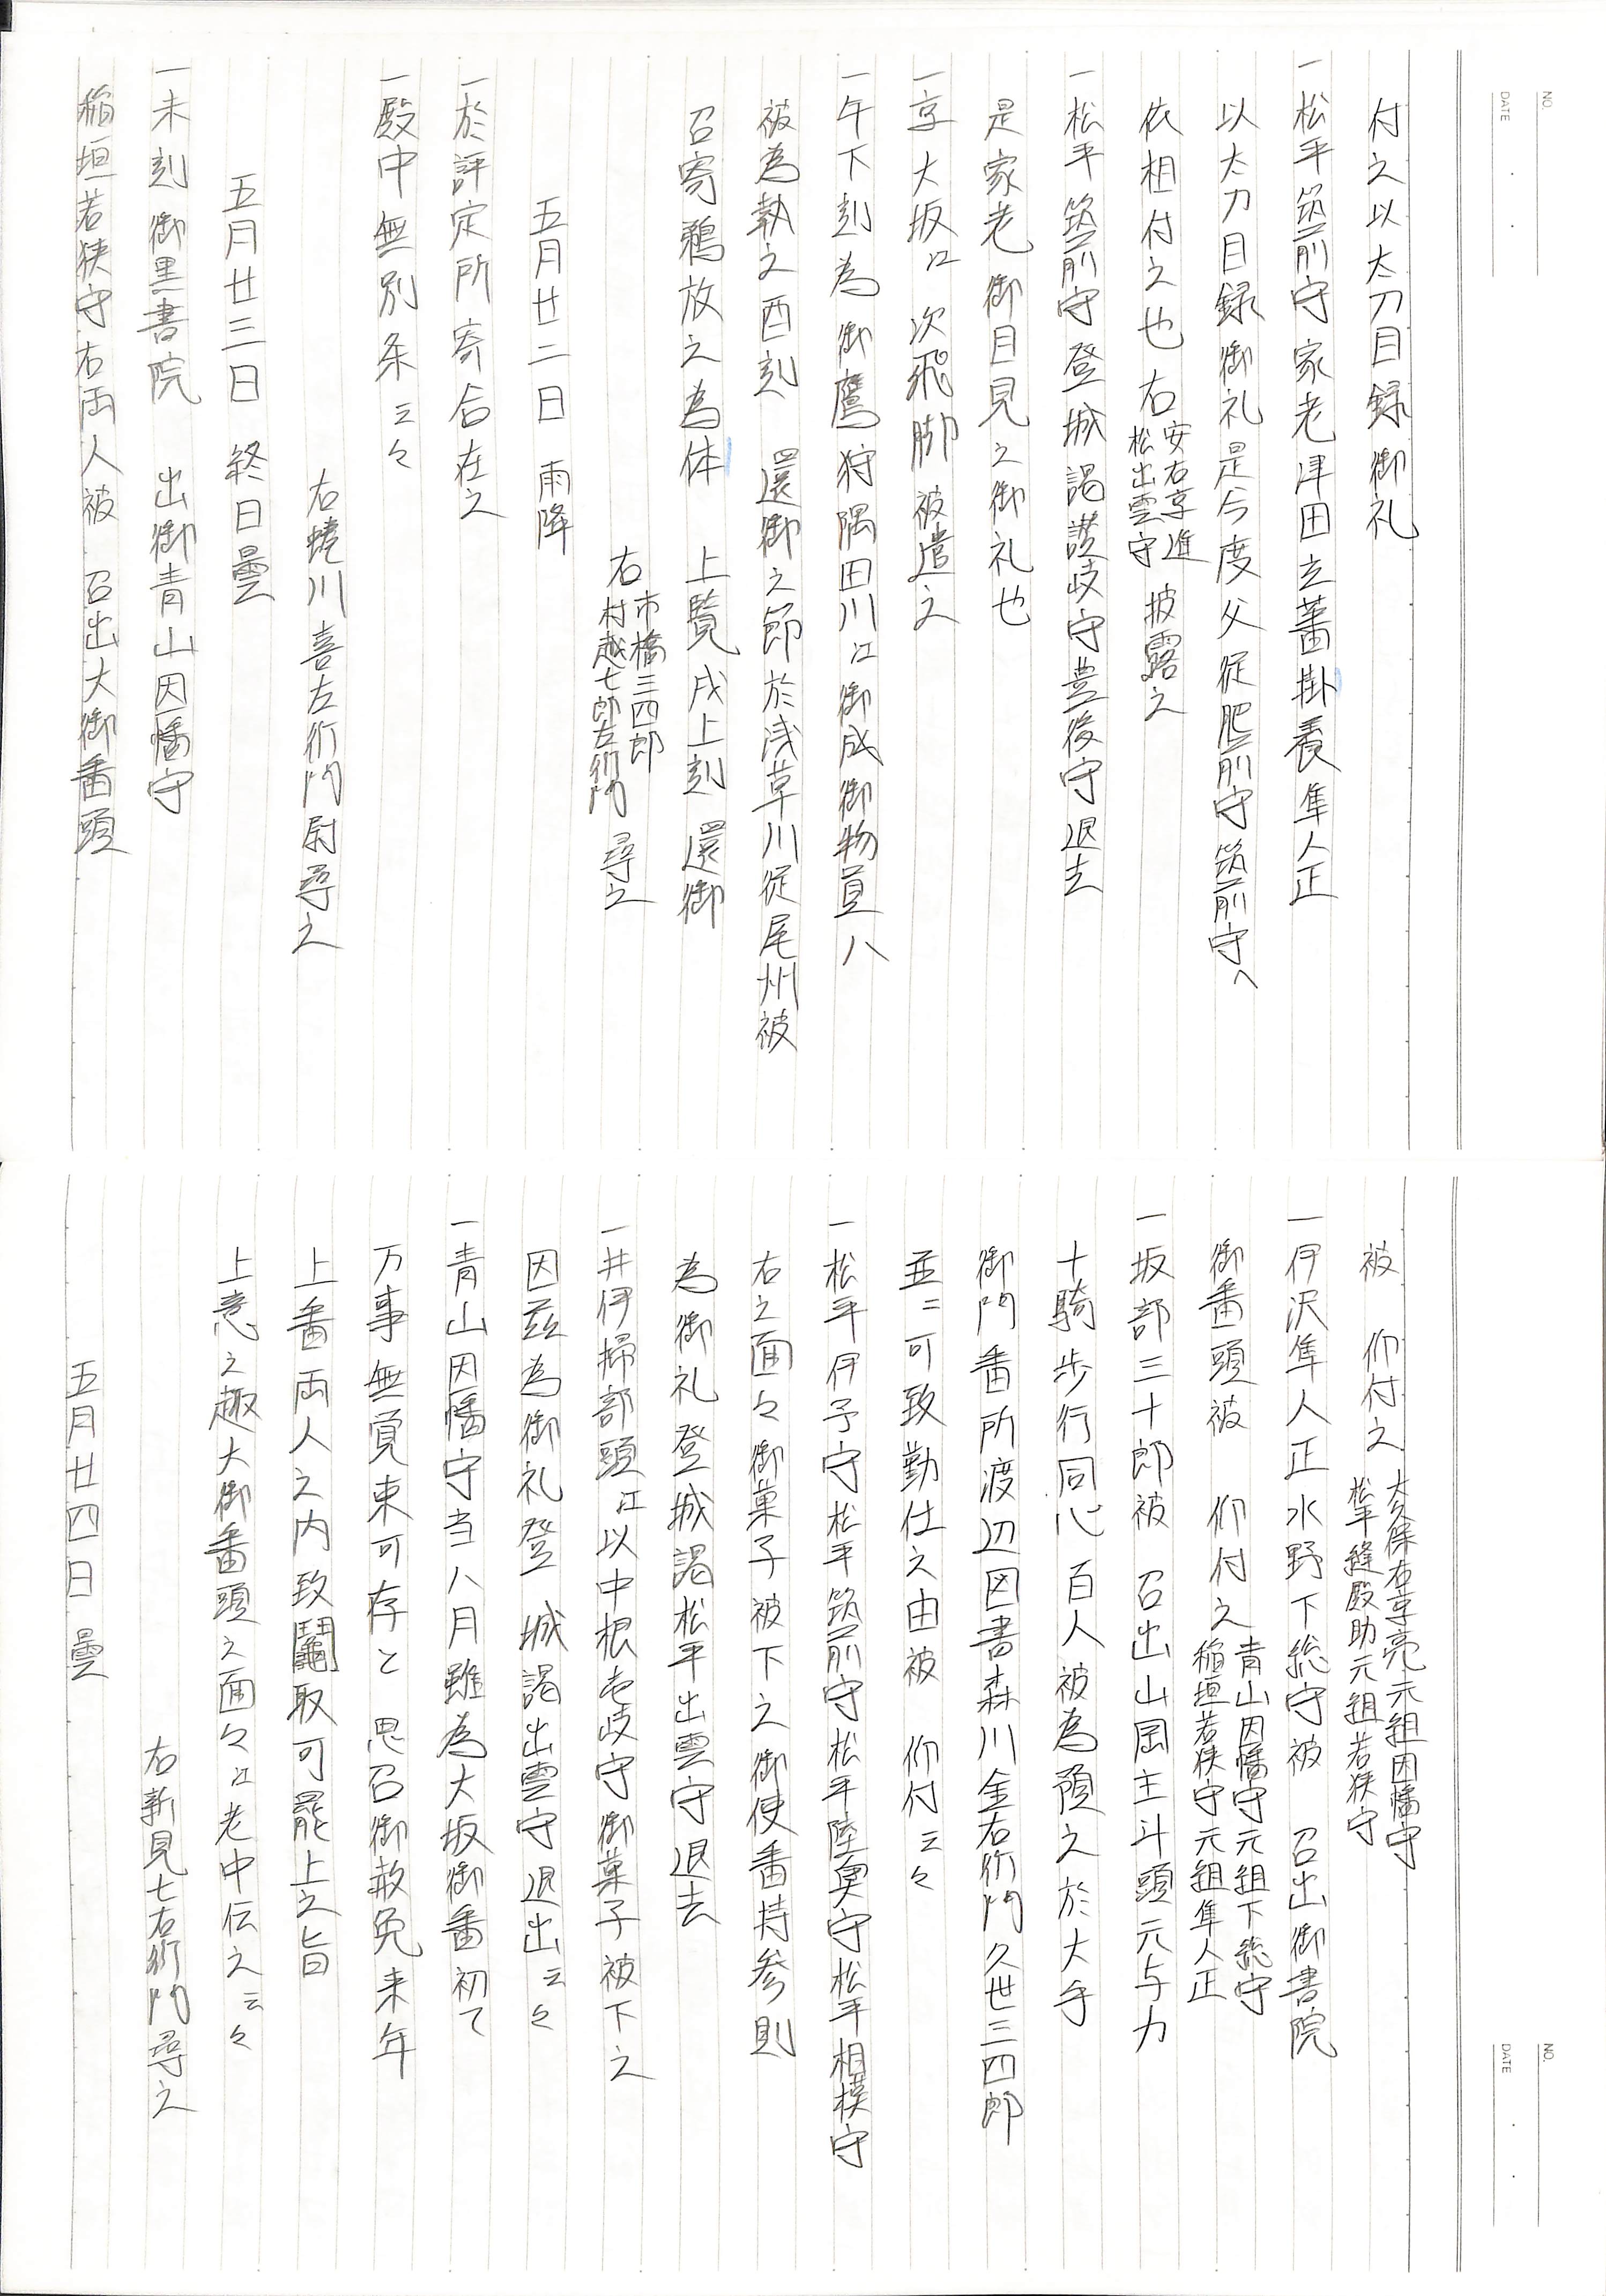 NO.
DATE
付之以太刀目録御礼
一松平筑前守家老津田玄蕃掛養隼人正
以太刀目録御礼是今度父従肥前守筑前守へ
依相付之也 右安右京進松出雲守 披露之
一松平筑前守登城謁讃岐守豊後守退去
是家老御目見之御礼也
一京大坂江次飛脚被遣之
一午下刻為御鷹狩隅田川江御成御物員八
被為執之酉刻 還御之節於浅草川従尾州被
召寄鵜放之為体 上覧戌上刻 還御
右市橋三四郎村越七郎左衛門 尋之
五月廿二日 雨降
一於評定所寄合在之
一殿中無別条云々
右蜷川喜左衛門尉尋之
五月廿三日 終日曇
一未刻御黒書院 出御青山因幡守
稲垣若狭守右両人被 召出大御番頭
NO.
DATE
被 仰付之 大久保右京亮元組因幡守松平縫殿助元組若狭守
一伊沢隼人正水野下総守被 召出御書院
御番頭被 仰付之 青山因幡守元組下総守稲垣若狭守元組隼人正
一坂部三十郎被 召出山岡主斗頭元与力
十騎歩行同心百人被為預之於大手
御門番所渡辺図書森川金右衛門久世三四郎
並ニ可致勤仕之由被 仰付云々
一松平伊予守松平筑前守松平陸奥守松平相模守
右之面々御菓子被下之御使番持参則
為御礼登城謁松平出雲守退去
一井伊掃部頭江以中根壱岐守御菓子被下之
因茲為御礼登 城謁出雲守退出云々
一青山因幡守当八月雖為大坂御番初て
万事無覚束可存と 思召御赦免来年
上番両人之内致鬮取可罷上之旨
上意之趣大御番頭之面々江老中伝之云々
右新見七右衛門尋之
五月廿四日 曇